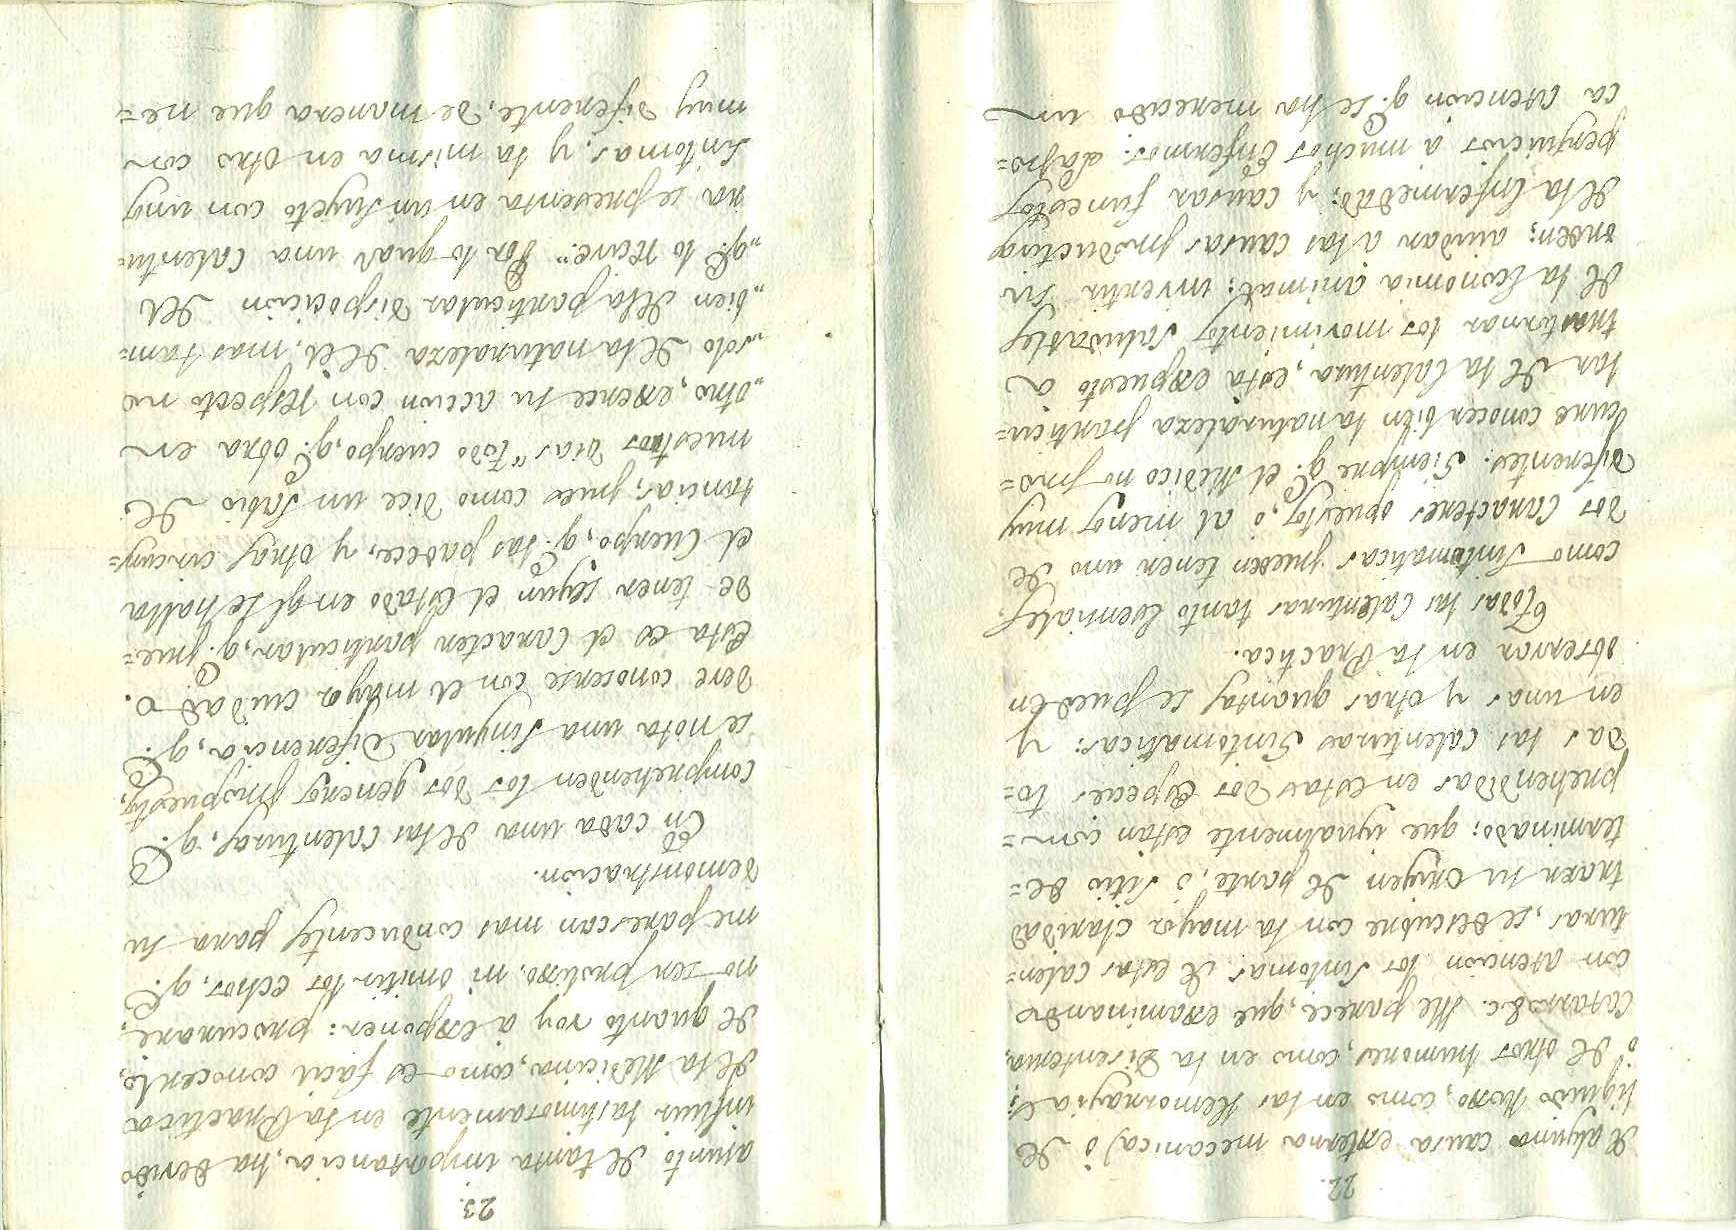 22.
de alguna causa externa mecanica) ô de
liquido Roxo, como en las Hemorragias;
ô de otros humores, como en la Disenteria,
Catarro &c. Me parece, que examinando
con atencion los Sintomas de estas calen-
turas, se descubre con la mayor claridad
traen su origen de parte, ô sitio de=
terminado: que igualmente estan com=
prehendidas en estas dos especies to=
das las calenturas Sintomaticas: y
en unas y otras quantas se pueden
observar en la Practica.
Todas las Calenturas tanto Esenciales,
como Sintomaticas pueden tener uno de
dos Caracteres opuestos, ô al menos muy
diferentes. Siempre q.e el Medico no pro=
cure conocer bien la naturaleza particu=
lar de la Calentura, esta expuesto a
trastornar los movimientos saludables
de la Economia animal; invertir su
orden; auidar a las causas productivas
de la Enfermedad; y causar funestos
perjuicios â muchos Enfermos. La po=
ca atencion q.e se ha merecido un
23.
asunto de tanta importancia, ha devido
influir lastimosamente en la Practica
de la Medicina, como es facil conocerlo,
de quanto voy a exponer: procurare,
no ser prolixo, ni omitir los echos, q.e
me parescan mas conducentes para su
demonstracion.
En cada una de las Calenturas, q.e
comprehenden los dos generos propuestos,
se nota una singular diferencia, q.e
deve conocerse con el mayor cuidado.
Esta es el Caracter particular, q.e pue=
de tener segun el Estado en q.e se halla
el Cuerpo, q.e las padece, y otras circuns=
tancias; pues como dice un Sabio de
nuestros dias "todo cuerpo, q.e obra en
„otro, exerce su accion con respecto no
„solo de la naturaleza de el, mas tam=
„bien de la particular disposicion del
„q.e lo recive." Por lo qual una Calentu=
ra se presenta en un sugeto con unos
Sintomas, y la misma en otro con
muy diferente, de manera que ne=